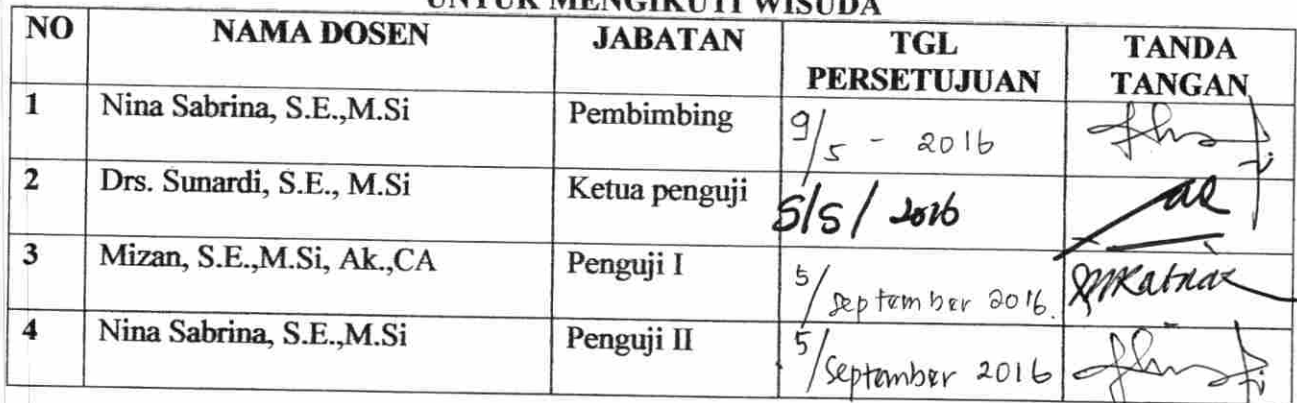 UNTUK MENGIKUTI WISUDA
NO NAMA DOSEN JABATAN TGL PERSETUJUAN TANDA TANGAN
1 Nina Sabrina, S.E.,M.Si Pembimbing 9/5 - 2016
2 Drs. Sunardi, S.E., M.Si Ketua penguji 5/5/ 2016
3 Mizan, S.E.,M.Si, Ak.,CA Penguji I 5/September 2016.
4 Nina Sabrina, S.E.,M.Si Penguji II 5/September 2016